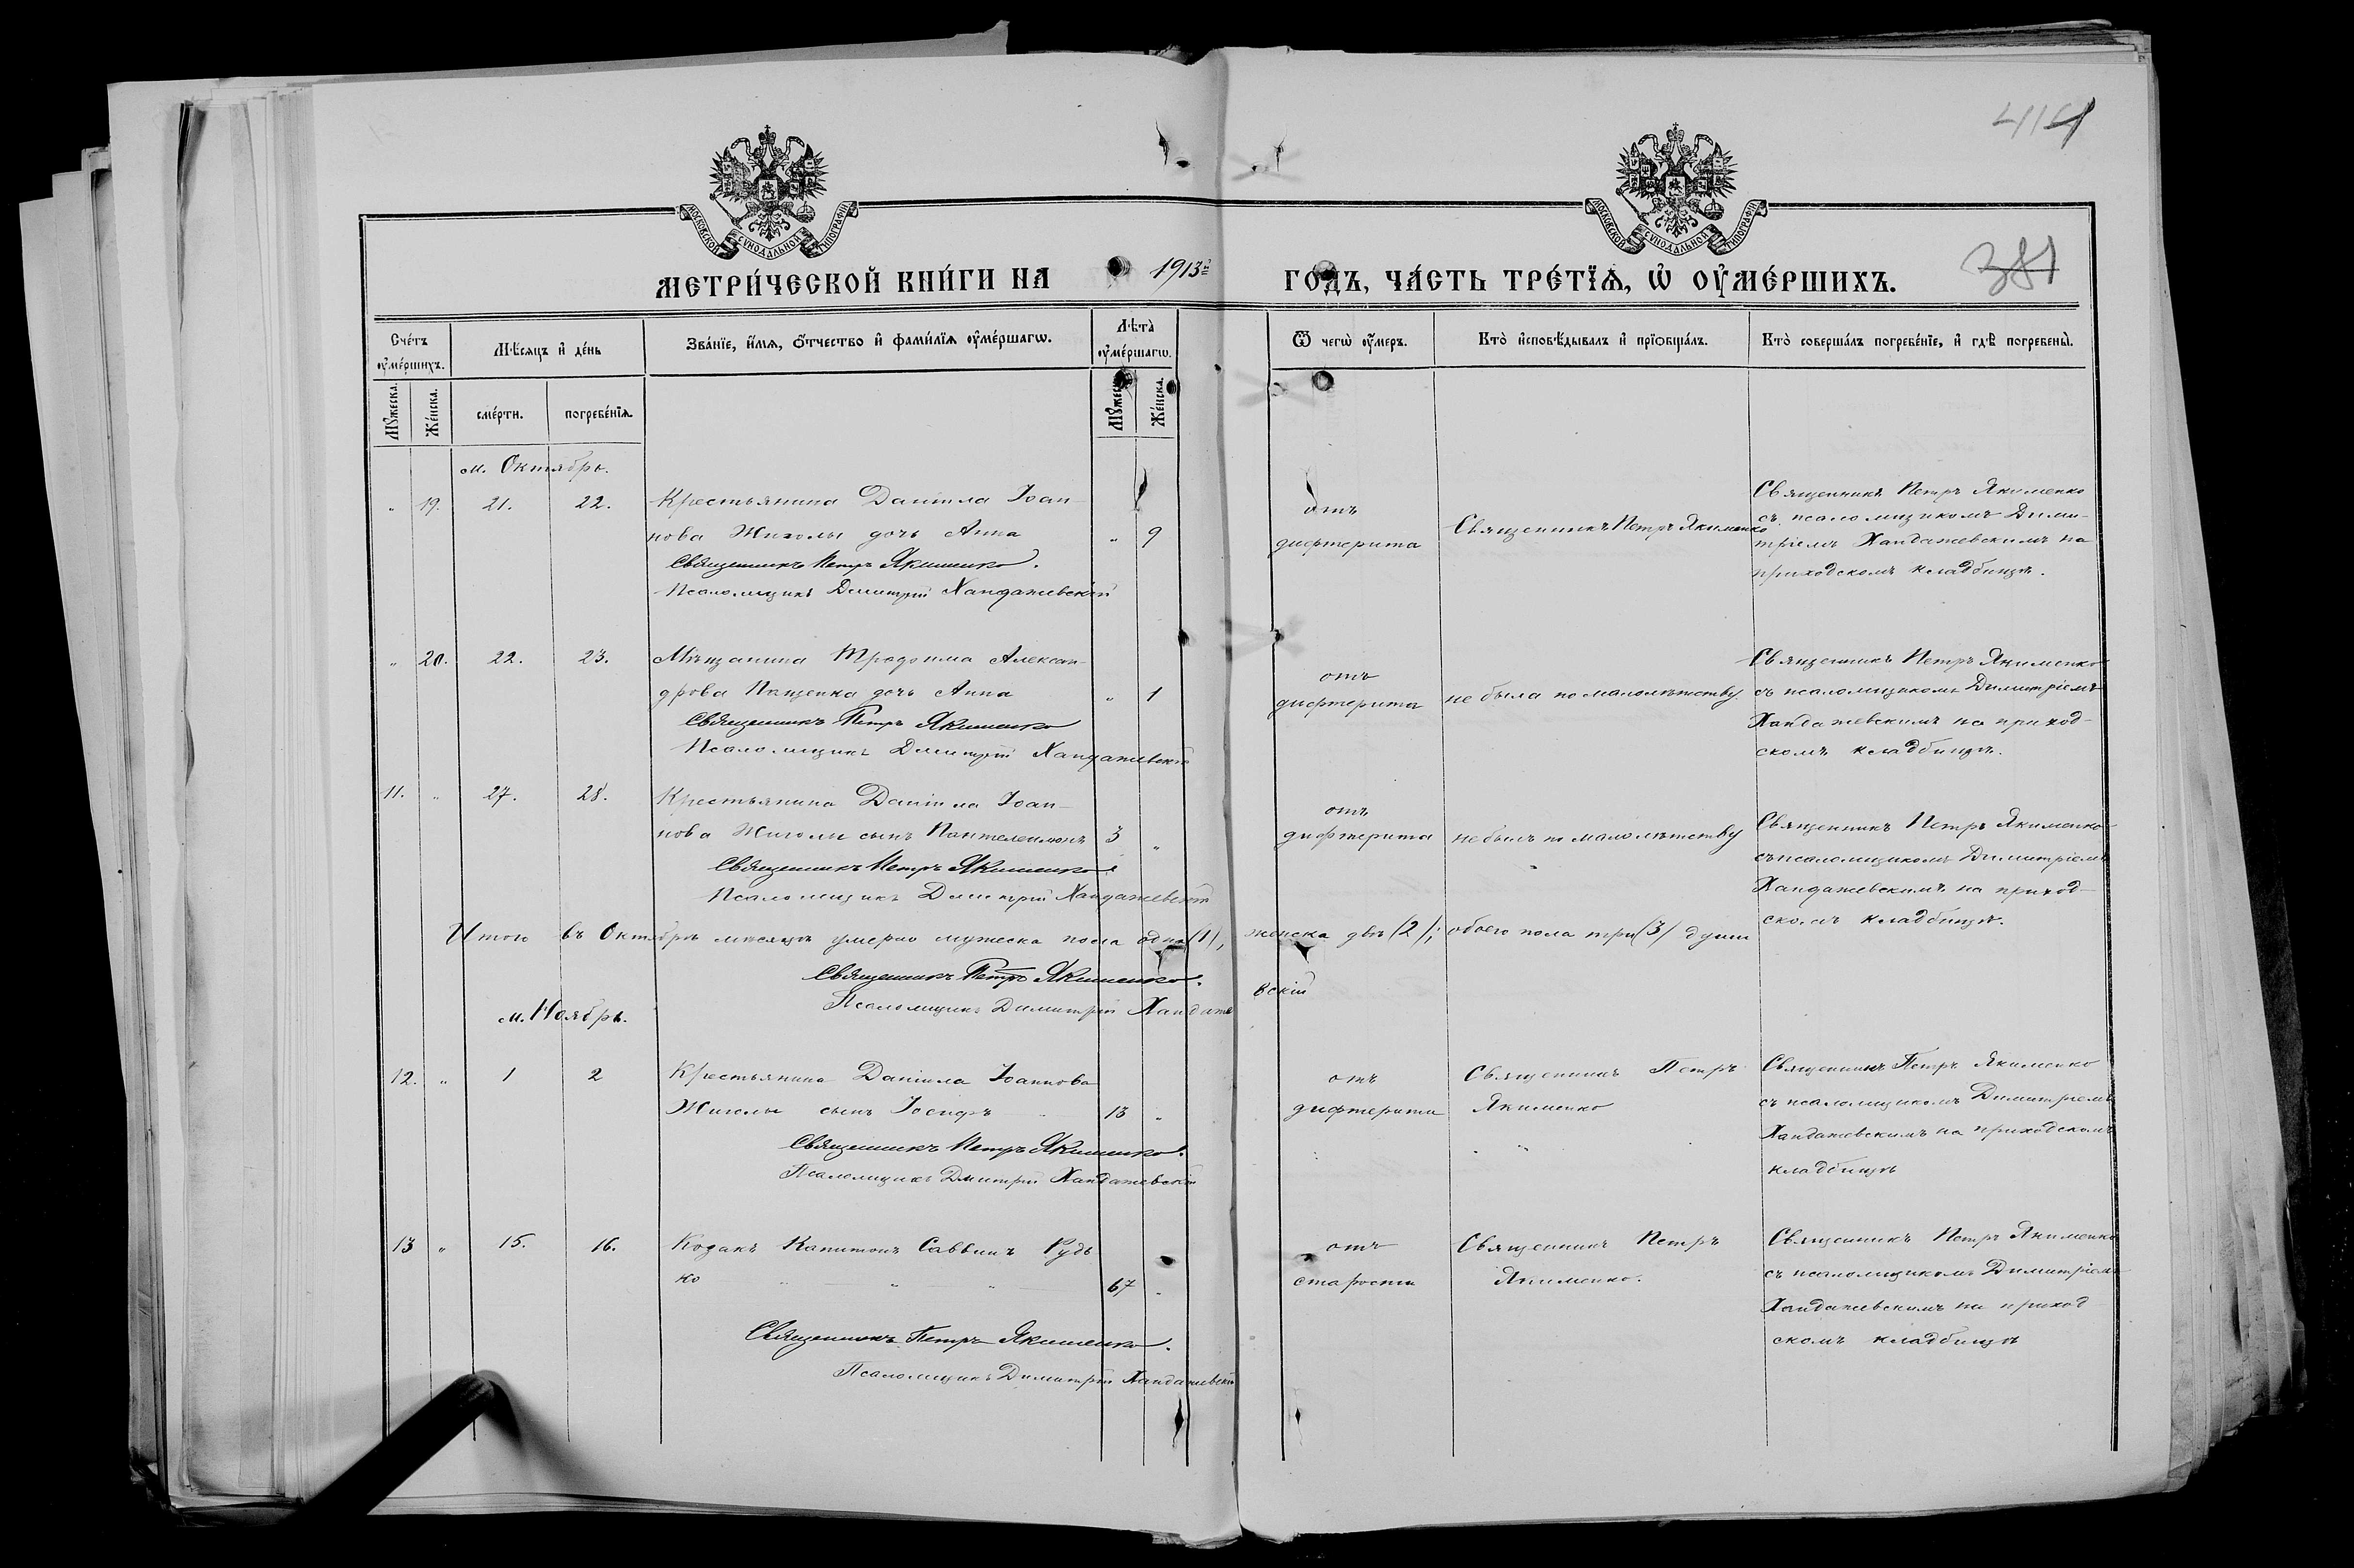 414
МОСКОВСКОЙ СѴНОДАЛЬНОЙ ТИПОГРАФІИ
МОСКОВСКОЙ СѴНОДАЛЬНОЙ ТИПОГРАФІИ
МЕТРИ́ЧЕСКОЙ КНИ́ГИ НА 1913й ГО́ДЪ, ЧА́СТЬ ТРЕ́ТЇѦ, Ѡ҆ ОУ҆МЕ́РШИХЪ.
381
Сче́тъ оу҆ме́ршихъ.
Мѣ́сяцъ и҆ де́нь
Зва́нїе, и҆́мѧ, ѻ҆́тчество и҆ фами́лїѧ оу҆ме́ршагѡ.
Лѣ́та оу҆ме́ршагѡ.
Ѿ чегѡ̀ оу҆́меръ.
Кто̀ и҆сповѣ́дывалъ и҆ прїѡбща́лъ.
Кто̀ соверша́лъ погребе́нїе, и҆ гдѣ̀ погребены̀.
Мꙋ́жеска.
Же́нска.
сме́рти.
погребе́нїѧ.
Мꙋ́жеска.
Же́нска.
м. Октябрь.
" 19. 21. 22. Крестьянина Даніила Іоан-
нова Жиголы дочь Анна " 9
Священникъ Петръ Якименко.
Псаломщикъ Димитрій Хандажевскій
отъ
дифтерита
Священникъ Петръ Якименко
Священникъ Петръ Якименко
съ псаломщикомъ Дими-
тріемъ Хандажевскимъ на
приходскомъ кладбищѣ.
" 20. 22. 23. Мѣщанина Трофима Алексан-
дрова Пащенка дочь Анна " 1
Священникъ Петръ Якименко
Псаломщикъ Димитрій Хандажевскій
отъ
дифтерита
не была по малолѣтству
Священникъ Петръ Якименко
съ псаломщикомъ Димитріемъ
Хандажевскимъ на приход-
скомъ кладбищѣ.
11. " 27. 28. Крестьянина Даніила Іоан-
нова Жиголы сынъ Пантелеимонъ 3 "
Священникъ Петръ Якименко.
Псаломщикъ Димитрій Хандажевскій
отъ
дифтерита
не былъ по малолѣтству
Священникъ Петръ Якименко
съ псаломщикомъ Димитріемъ
Хандажевскимъ на приход-
скомъ кладбищѣ.
Итого въ Октябрѣ мѣсяцѣ умерло мужеска пола одна (1), женска двѣ (2); обоего пола три (3) души
Священникъ Петръ Якименко.
Псаломщикъ Димитрій Хандажевскій
м. Ноябрь.
12. " 1 2 Крестьянина Даніила Іоаннова
Жиголы сынъ Іосифъ 13 "
Священникъ Петръ Якименко.
Псаломщикъ Димитрій Хандажевскій
отъ
дифтерита
Священникъ Петръ
Якименко
Священникъ Петръ Якименко
съ псаломщикомъ Димитріемъ
Хандажевскимъ на приходскомъ
кладбищѣ
13 " 15. 16. Козакъ Капитонъ Саввинъ Рудь
ко " " " 67 "
Священникъ Петръ Якименко.
Псаломщикъ Димитрій Хандажевскій
отъ
старости
Священникъ Петръ
Якименко.
Священникъ Петръ Якименко
съ псаломщикомъ Димитріемъ
Хандажевскимъ на приход
скомъ кладбищѣ